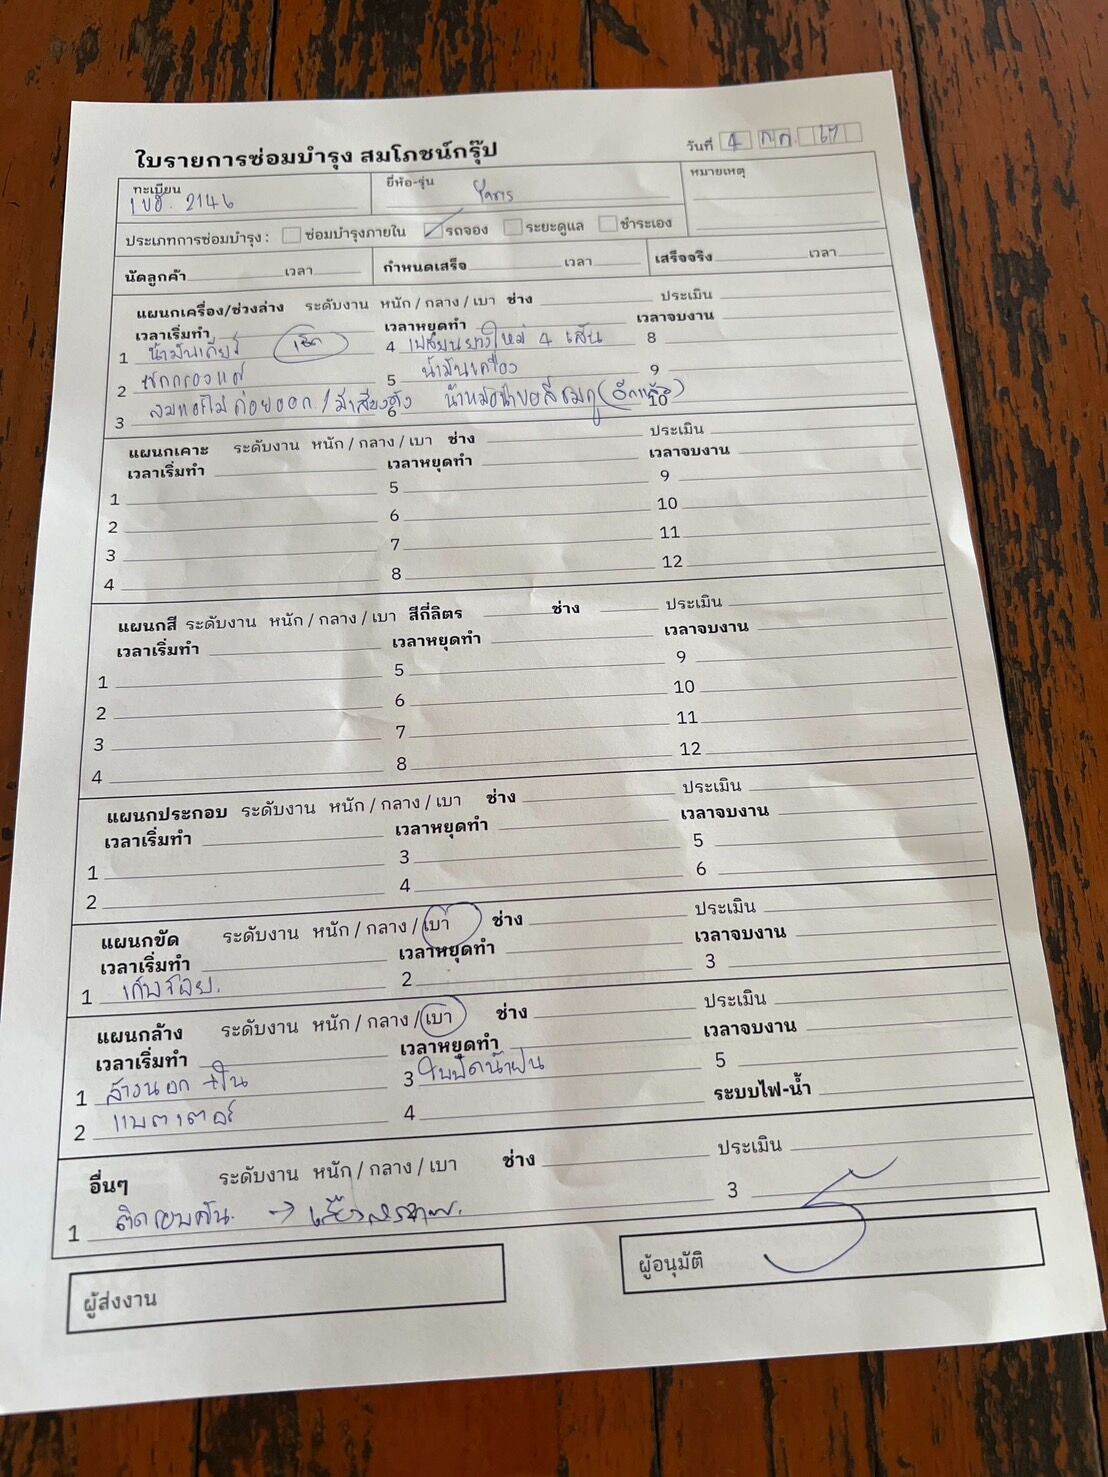 ใบรายการซ่อมบำรุง สมโภชน์กรุ๊ป
วันที่ 4 ก.ค. 67
ทะเบียน ยี่ห้อ-รุ่น หมายเหตุ
2146 ยาริส
ประเภทการซ่อมบำรุง : ซ่อมบำรุงภายใน รถจอง ระยะดูแล ชำระเอง
นัดลูกค้า เวลา กำหนดเสร็จ เวลา เสร็จจริง เวลา
แผนกเครื่อง/ช่วงล่าง ระดับงาน หนัก / กลาง / เบา ช่าง ประเมิน
เวลาเริ่มทำ เวลาหยุดทำ เวลาจบงาน
1 น้ำมันเกียร์ เช็ค 4 เปลี่ยนยางใหม่ 4 เส้น 8
2 กรองแอร์ 5 น้ำมันเครื่อง 9
3 ลมแอร์ไม่ค่อยออก / มีเสียงดัง 6 10
แผนกเคาะ ระดับงาน หนัก / กลาง / เบา ช่าง ประเมิน
เวลาเริ่มทำ เวลาหยุดทำ เวลาจบงาน
1 5 9
2 6 10
3 7 11
4 8 12
แผนกสี ระดับงาน หนัก / กลาง / เบา สีกี่ลิตร ช่าง ประเมิน
เวลาเริ่มทำ เวลาหยุดทำ เวลาจบงาน
1 5 9
2 6 10
3 7 11
4 8 12
แผนกประกอบ ระดับงาน หนัก / กลาง / เบา ช่าง ประเมิน
เวลาเริ่มทำ เวลาหยุดทำ เวลาจบงาน
1 3 5
2 4 6
แผนกขัด ระดับงาน หนัก / กลาง / เบา ช่าง ประเมิน
เวลาเริ่มทำ เวลาหยุดทำ เวลาจบงาน
1 เก็บรอย 2 3
แผนกล้าง ระดับงาน หนัก / กลาง / เบา ช่าง ประเมิน
เวลาเริ่มทำ เวลาหยุดทำ เวลาจบงาน
1 ล้างนอก + ใน 3 ใบปัดน้ำฝน 5
2 แบตเตอรี่ 4 ระบบไฟ-น้ำ
อื่นๆ ระดับงาน หนัก / กลาง / เบา ช่าง ประเมิน
1 ติดรอบคัน → 3
ผู้ส่งงาน ผู้อนุมัติ